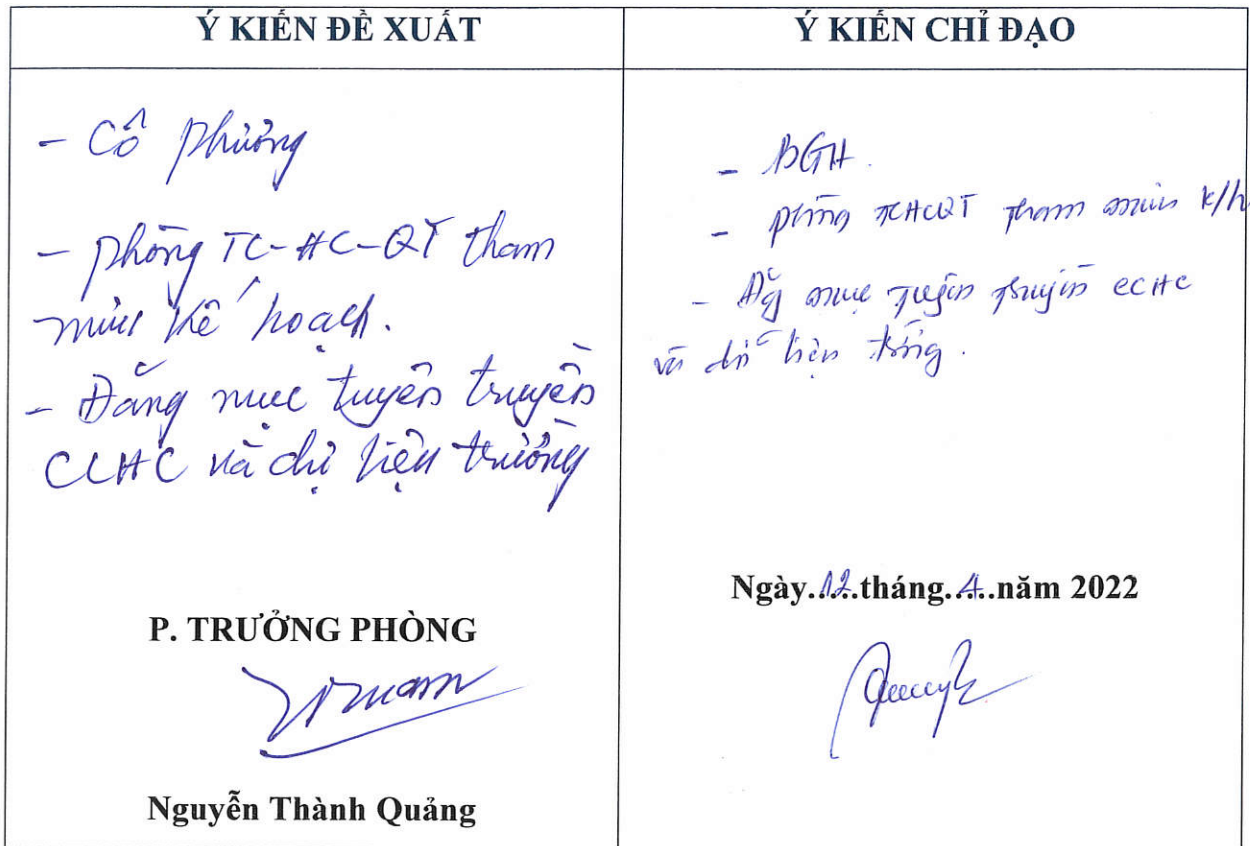 Ý KIẾN ĐỀ XUẤT
- Cô Phường
- Phòng TC-HC-QT tham
mưu kế hoạch.
- Đăng mục tuyên truyền
CCHC và chị hiệu trưởng
P. TRƯỞNG PHÒNG
Nguyễn Thành Quảng
Ý KIẾN CHỈ ĐẠO
- BGH.
- phòng TCHCQT tham mưu k/h
- mục tuyên truyền CCHC
và
Ngày..12..tháng..4..năm 2022